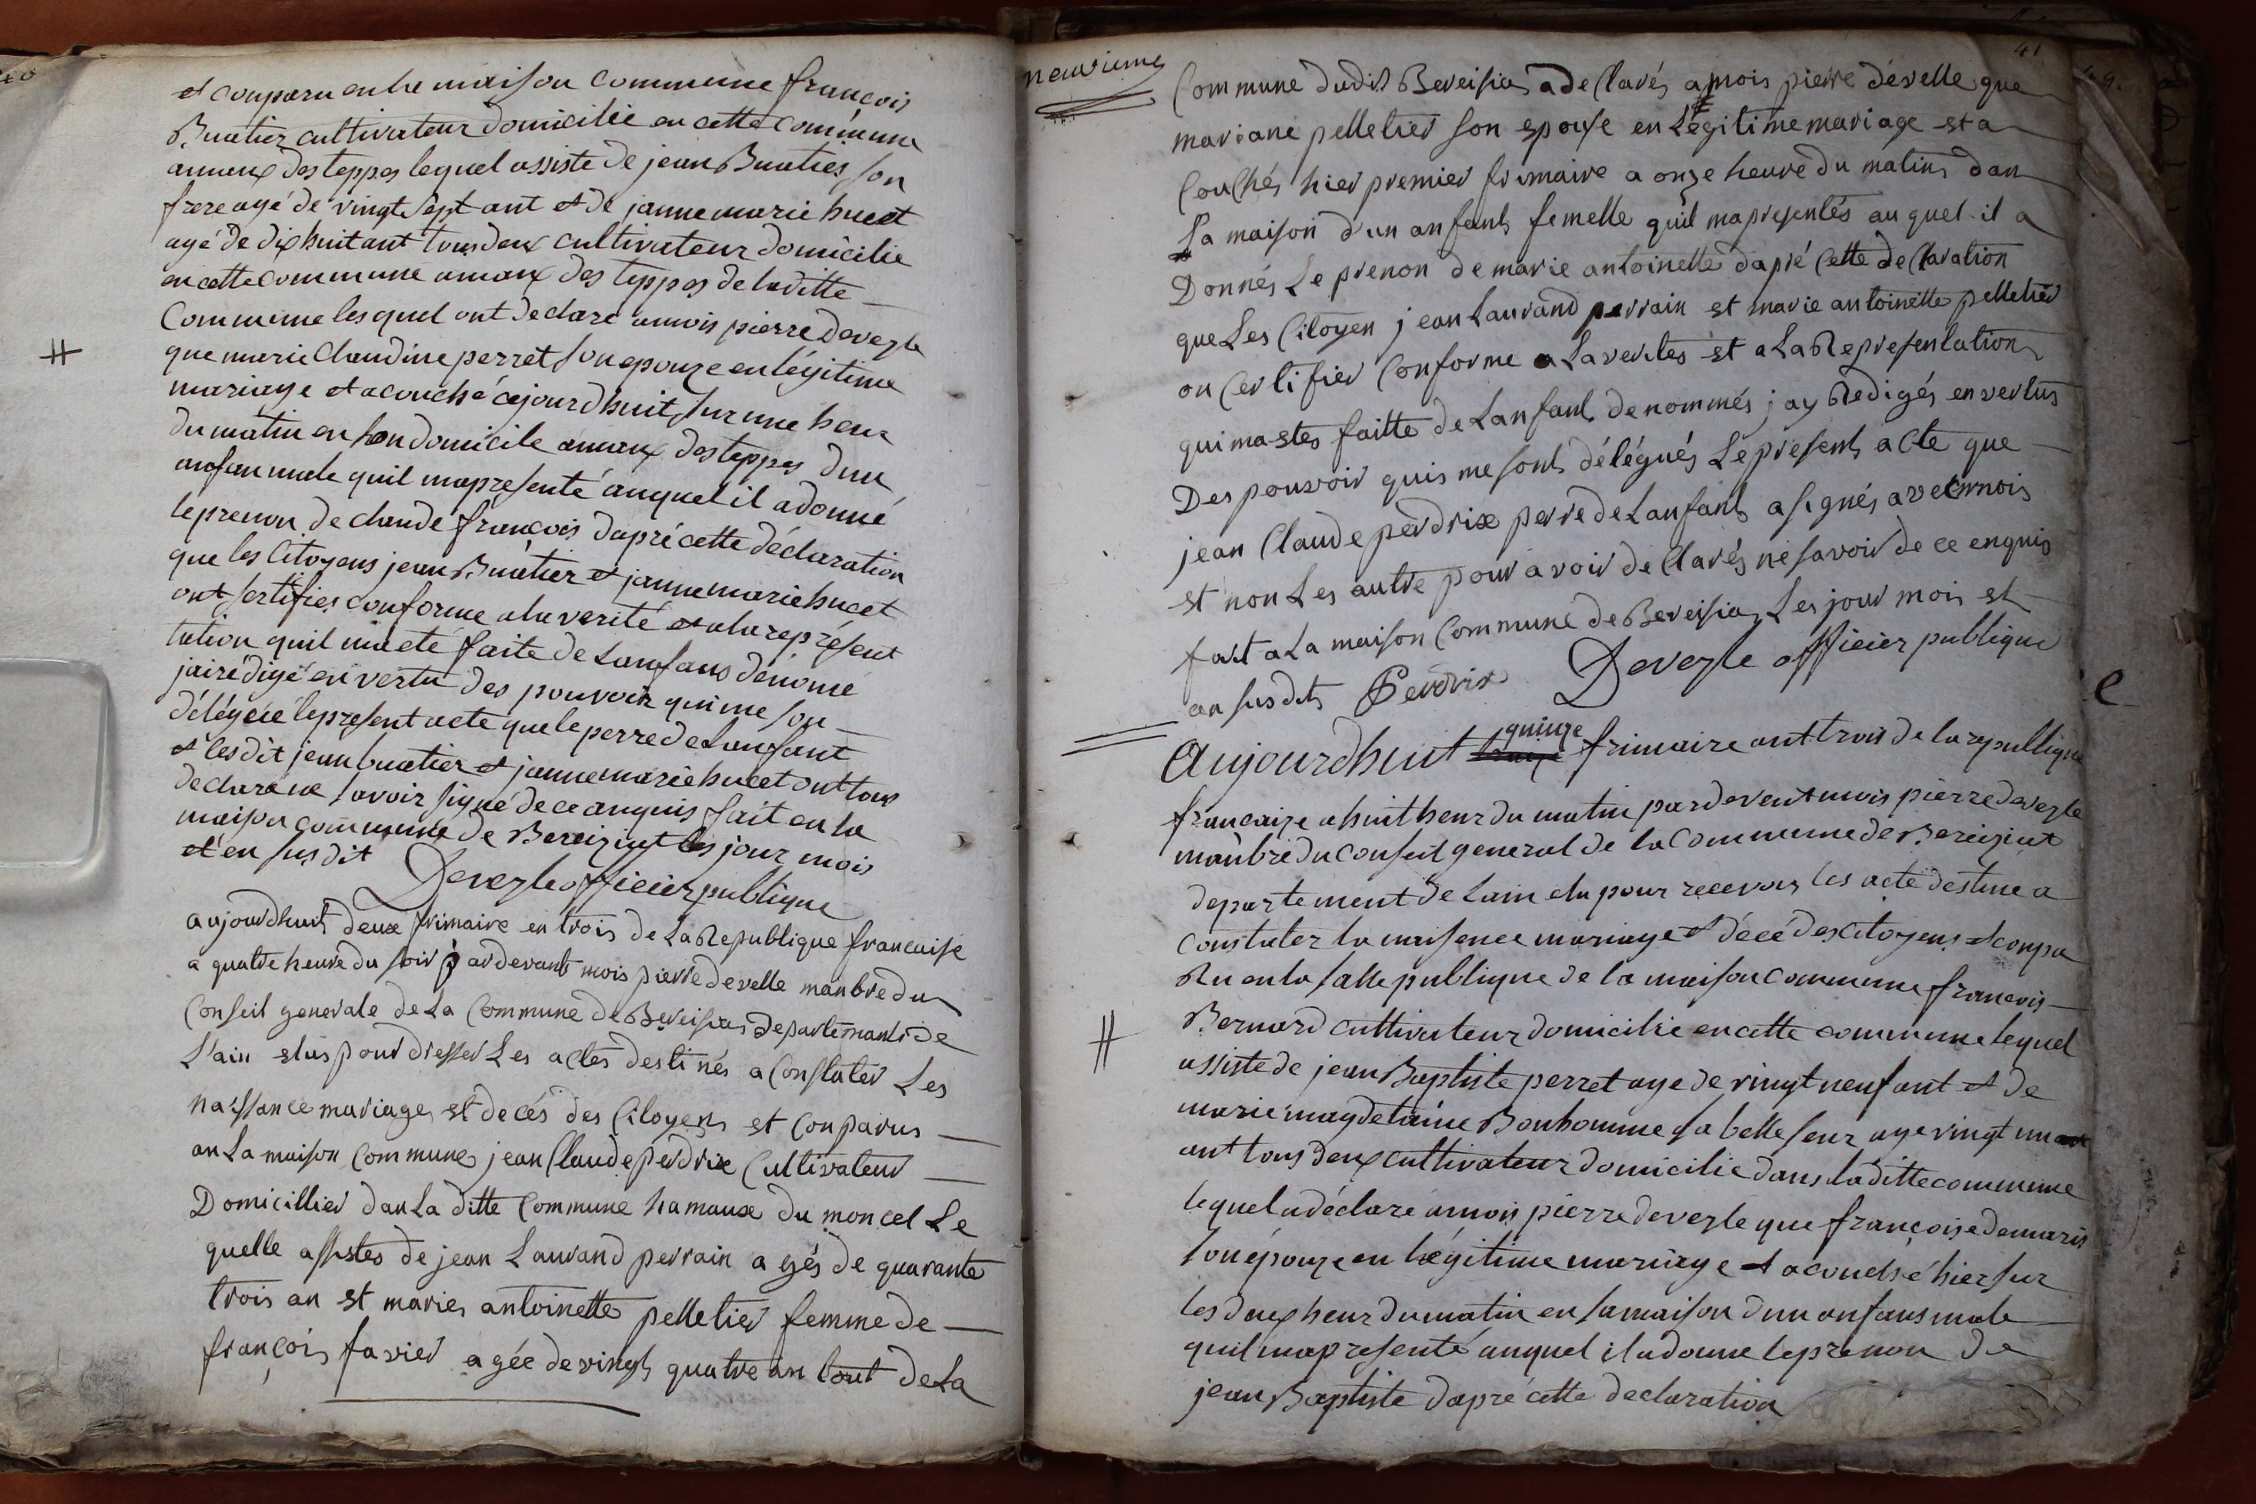 et conparu en la maison commune françois
Buatier cultivateur domicilié en cette commune
amaux des teppes lequel assiste de jean Buatier son
frere agé de vingt sept ant et de janne marie huet
agé de dix huit ant tous deux cultivateur domicilie
en cette commune amaux des teppes de laditte
Commune lesquel ont declaré amois pierre devezle
que marie Claudine perret son epouze en légitime
mariage et acouché cejourdhuit sur une heur
du matin en son domicile amaux des teppes dun
anfan male quil mapresenté auquel il adonné
le prenon de claude françois dapré cette déclaration
que les Citoyens jean Buatier et janne marie huet
ont sertifies conforme ala verité et ala represent
tation quil ma eté faite de Lanfans dénomé
jairédigé en vertu des pouvoir qui me son
délégúé le present acte que le perre de Lanfant
et lesdit jean buatier et janne marie huet ont tous
declaré ne savoir signé de ce anquis fait en la
maison commune de Bereiziat les jour mois
et en susdit Devezle officier publique
aujourdhuit deux frimaire en trois de La Republique francaise
a quatre heure du soir pardevant mois pierre develle manbre du
Conseil generale de La Commune de Bereisias departemant de
L'ain elus pour dresser Les actes destinés a Constater Les
naissance mariage et decés des Citoyens et Conparus
an La maison Commune jean Claude perdrix Cultivateur
Domicillier dan La ditte Commune hamaux du moncel Le
quelle assistes de jean Laurand perrain agés de quarante
trois an et marie antoinette pelletier femme de
françois favier agée de vingt quatre an tout de La
41
neuvieme
Commune dudit Bereisia a de Clarés amois pierre develle que
mariane pelletier son epouse en Légitime mariage et a
Couchés hier premier frimaire a onze heure du matin dan
Sa maison d'un anfant femelle quil mapresentés au quel il a
Donnés Le prenon de marie antoinette dapré Cette de Claration
que Les Citoyen jean Laurand perrain et marie antoinette pelletier
on Certifier Conforme a La verites et a La Representation
qui ma etes faitte de Lanfant denommés jay Redigés en vertus
Des pouvoir quis me sont délégués Le present acte que
jean Claude perdrix perre de Lanfant a signés avec mois
et non Les autre pour avoir de Clarés ne savoir de ce enquis
fait a La maison Commune de Bereisia Les jour mois et
an susdits Perdrix Devezle officier publique
quinze
Aujourdhuit frimaire ant trois de la republique
francaize a huit heur du matin pardevent mois pierre devezle
manbre du conseil general de la Commune de Bereiziat
departement de Lain elu pour recevoir les acte destiné a
constater la naisence mariage et décé des citoyens et conpa
Ru en la salle publique de la maison commune francois
Bernard cultivateur domicilié en cette commune lequel
assiste de jean Baptiste perret age de vingt neuf ant et de
marie magdelaine Bonhomme sa belle seur age vingt un
ant tous deux cultivateur domicilié dans laditte commune
lequel a déclaré amois pierre devezle que françoise demaris
son épouze en légitime mariage et acouché hier sur
les deux heur du matin en sa maison dun anfans male
quil mapresenté auquel il adonne le prenon de
jean Baptiste dapré cette declaration